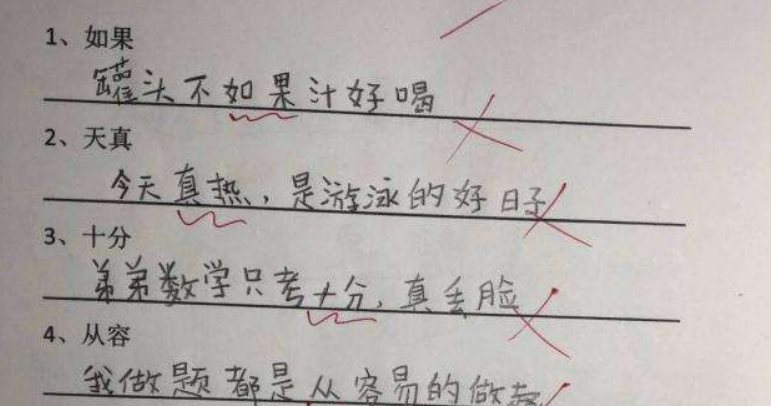 1、如果
罐头不如果汁好喝
2、天真
今天真热，是游泳的好日子
3、十分
弟弟数学只考十分，真丢脸
4、从容
我做题都是从容易的做起